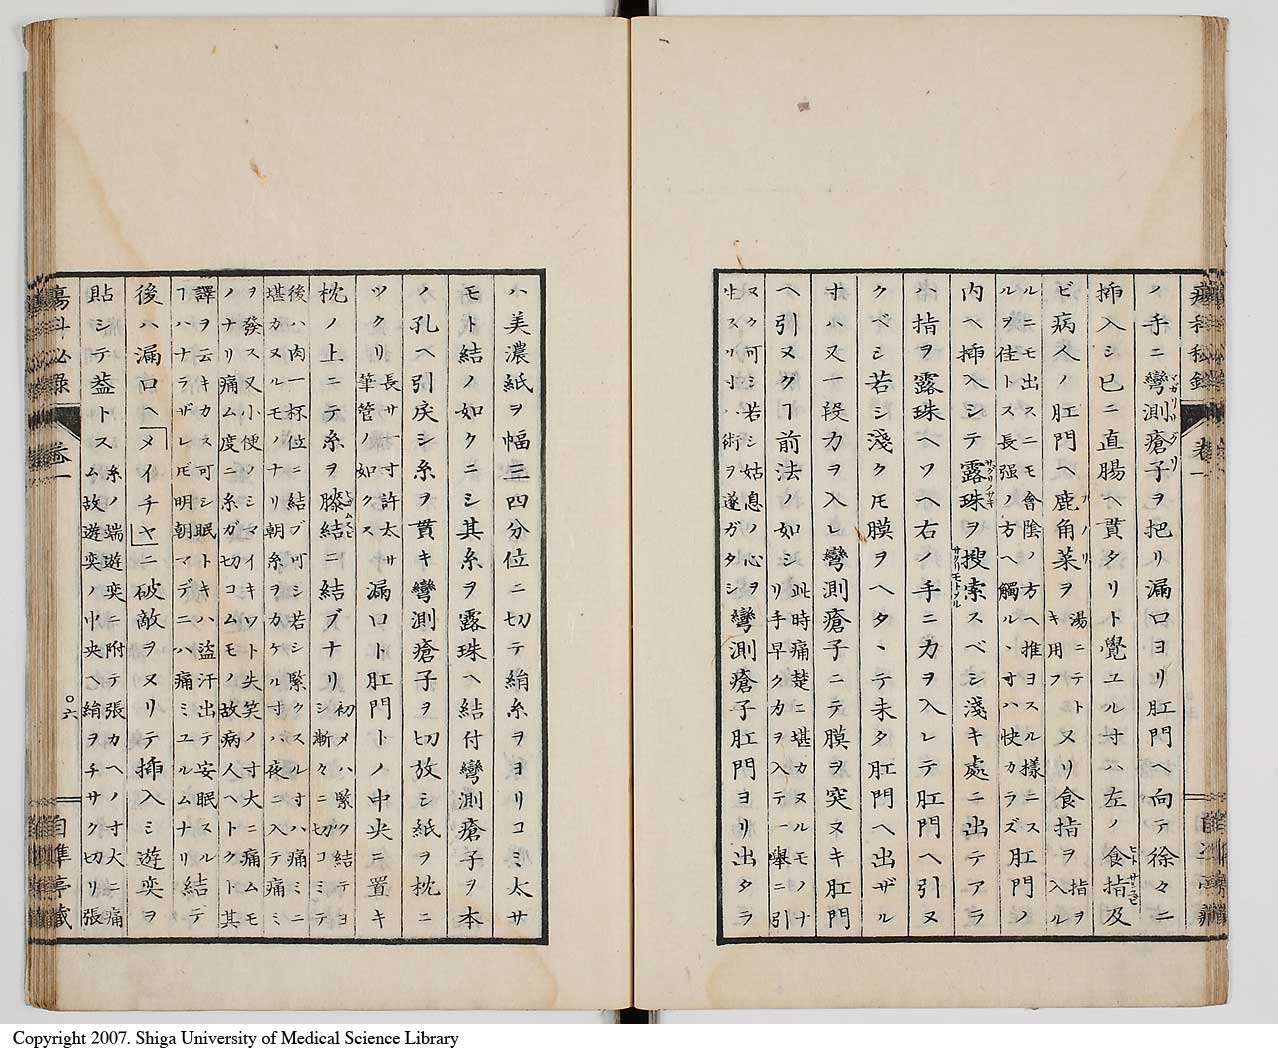 ノ手ニ彎測瘡子ヲ把リ漏口ヨリ肛門ヘ向テ徐々ニ
挿入シ已ニ直腸ヘ貫タリト覺ユル寸ハ左ノ食指及
ビ病人ノ肛門ヘ鹿角菜ヲ湯ニテトキ用フヌリ食指ヲ指ヲ入ル
ルニモ出スニモ會陰ノ方ヘ推ヨスル樣ニスルヲ佳トス長强ノ方ヘ觸ルヽ寸ハ快カラズ肛門ノ
内ヘ挿入シテ露珠ヲ搜索スベシ淺キ處ニ出テアラ
ハ指ヲ露珠ヘソヘ右ノ手ニ力ヲ入レテ肛門ヘ引ヌ
クベシ若シ淺クモ膜ヲヘタヽテ未タ肛門ヘ出ザル
寸ハ又一段力ヲ入レ彎測瘡子ニテ膜ヲ突ヌキ肛門
ヘ引ヌクヿ前法ノ如シ此時痛楚ニ堪カヌルモノナリ手早ク力ヲ入テ一擧ニ引
ヌク可シ若シ姑息ノ心ヲ生スリ寸ハ術ヲ遂ガタシ彎測瘡子肛門ヨリ出タラ
ハ美濃紙ヲ幅三四分位ニ切テ絹糸ヲヨリコミ太サ
モト結ノ如クニシ其糸ヲ露珠ヘ結付彎測瘡子ヲ本
ノ孔ヘ引戾シ糸ヲ貫キ彎測瘡子ヲ切放シ紙ヲ枕ニ
ツクリ長サ一寸許太サ筆管ノ如クス漏口ト肛門トノ中央ニ置キ
枕ノ上ニテ糸ヲ滕結ニ結ブナリ初メハ緊ク結テヨシ漸々ニ切コミテ
後ハ肉一杯位ニ結ブ可シ若シ緊クスル寸ハ痛ミニ堪カヌルモノナリ朝糸ヲカケル寸ハ夜ニ入テ痛ミ
ヲ發ス又小便ノシマイキワト失笑ノ寸大ニ痛ムモノナリ痛ム度ニ糸ガ切コムモノ故病人ヘトクト其
譯ヲ云キカス可シ眠トキハ盜汗出テ安眠スルヿハナラザレ𪜈明朝マデニハ痛ミユルムナリ結テ
後ハ漏口ヘメイチヤニ破敵ヲヌリテ挿入ミ遊奕ヲ
貼シテ葢トス糸ノ端遊奕ニ附テ張カヘノ寸大ニ痛ム故遊奕ノ中央ヘ絹ヲチサク切リ張
卷一
六
自準亭藏
Copyright 2007. Shiga University of Medical Science Library